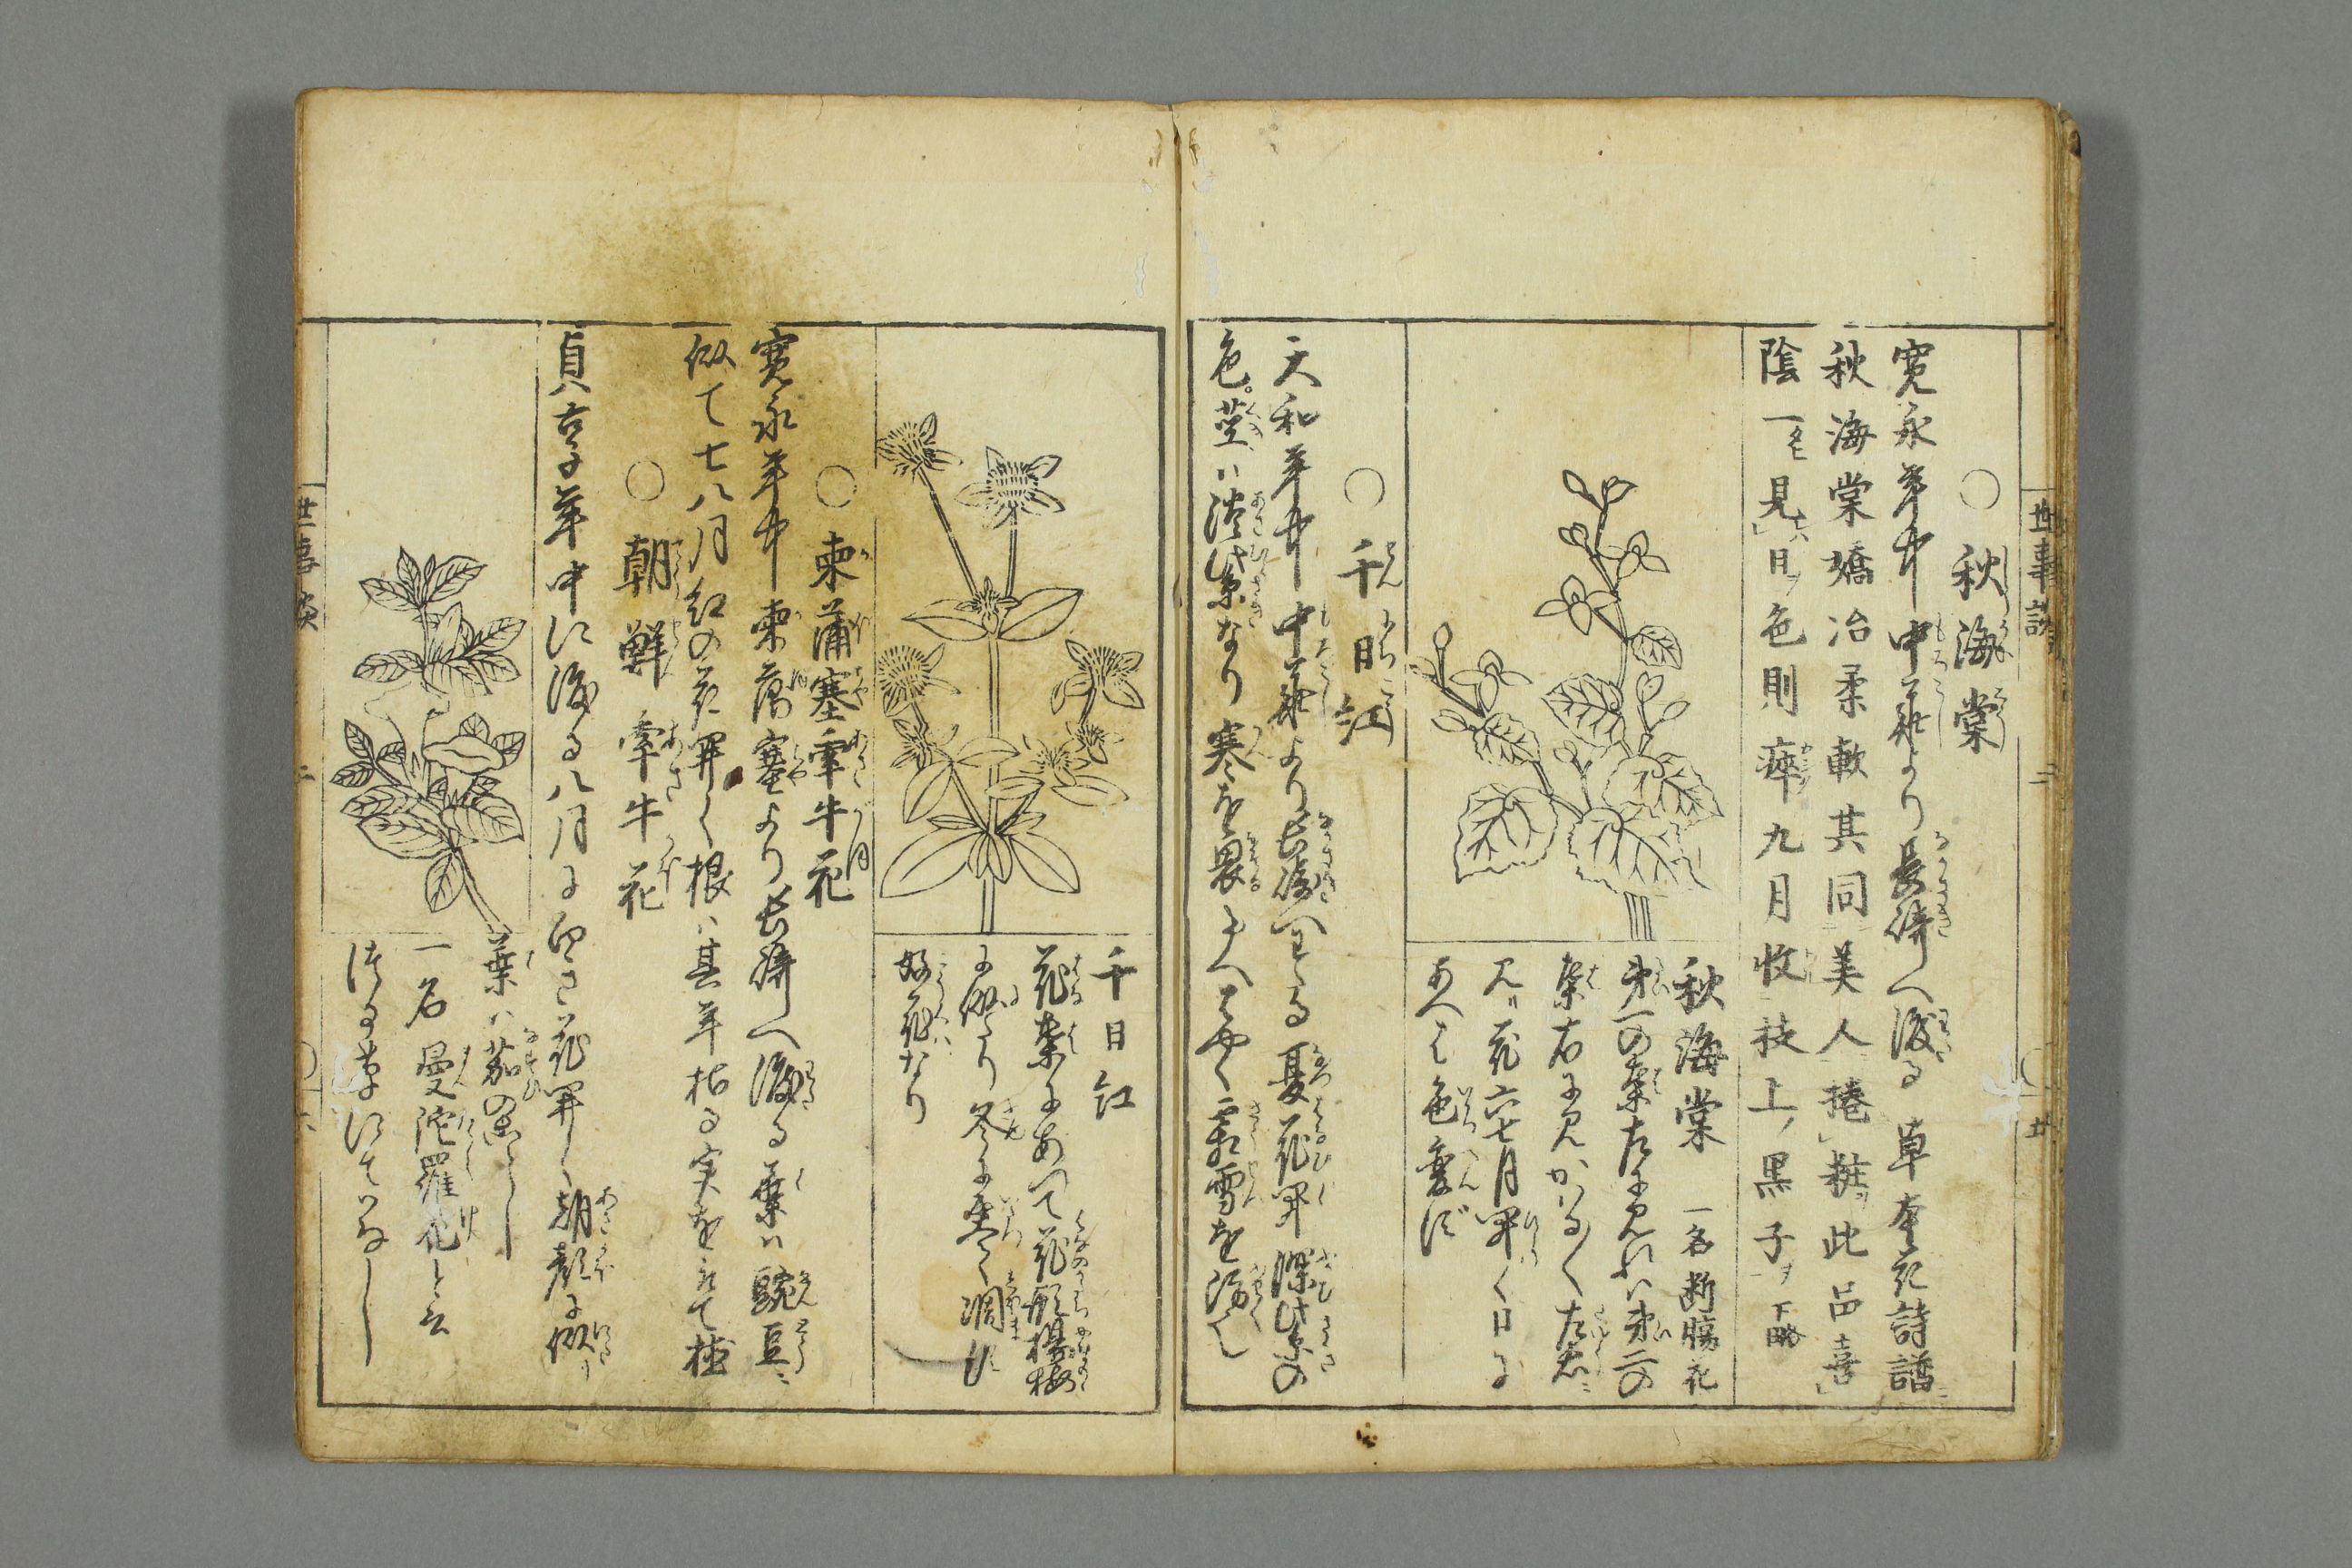 〇秋海棠
寛永年中中華より長崎へ渡る草本花詩譜ニ
秋海棠嬌冶柔軟其同美人捲粧此品喜
陰一見日ヲ色則瘁九月收枝上ノ黒子ヲ下略
秋海棠 一名断腸花
第一の葉左に見れハ第二の
葉右に見かゝる〱左右ニ
見ル花六七月開く日に
あへは色変ず
〇千日紅
天和年中中華より長崎へわたる夏花開深紫の
色。茎ハ淡紫なり寒を畏る
千日紅
花葉にあつて花形楊梅
に似たり冬に至て凋まず
好花なり
〇柬蒲塞牽牛花
寛永年中柬蒲塞より長崎へ渡る葉ハ豌豆ニ
似て七八月紅の花開く根ハ其年枯る実をとりて植
〇朝鮮牽牛花
貞享年中に渡る八月に白き花開く朝顔に似り
葉ハ茄のことし
一名曼陀羅花と云
世事談